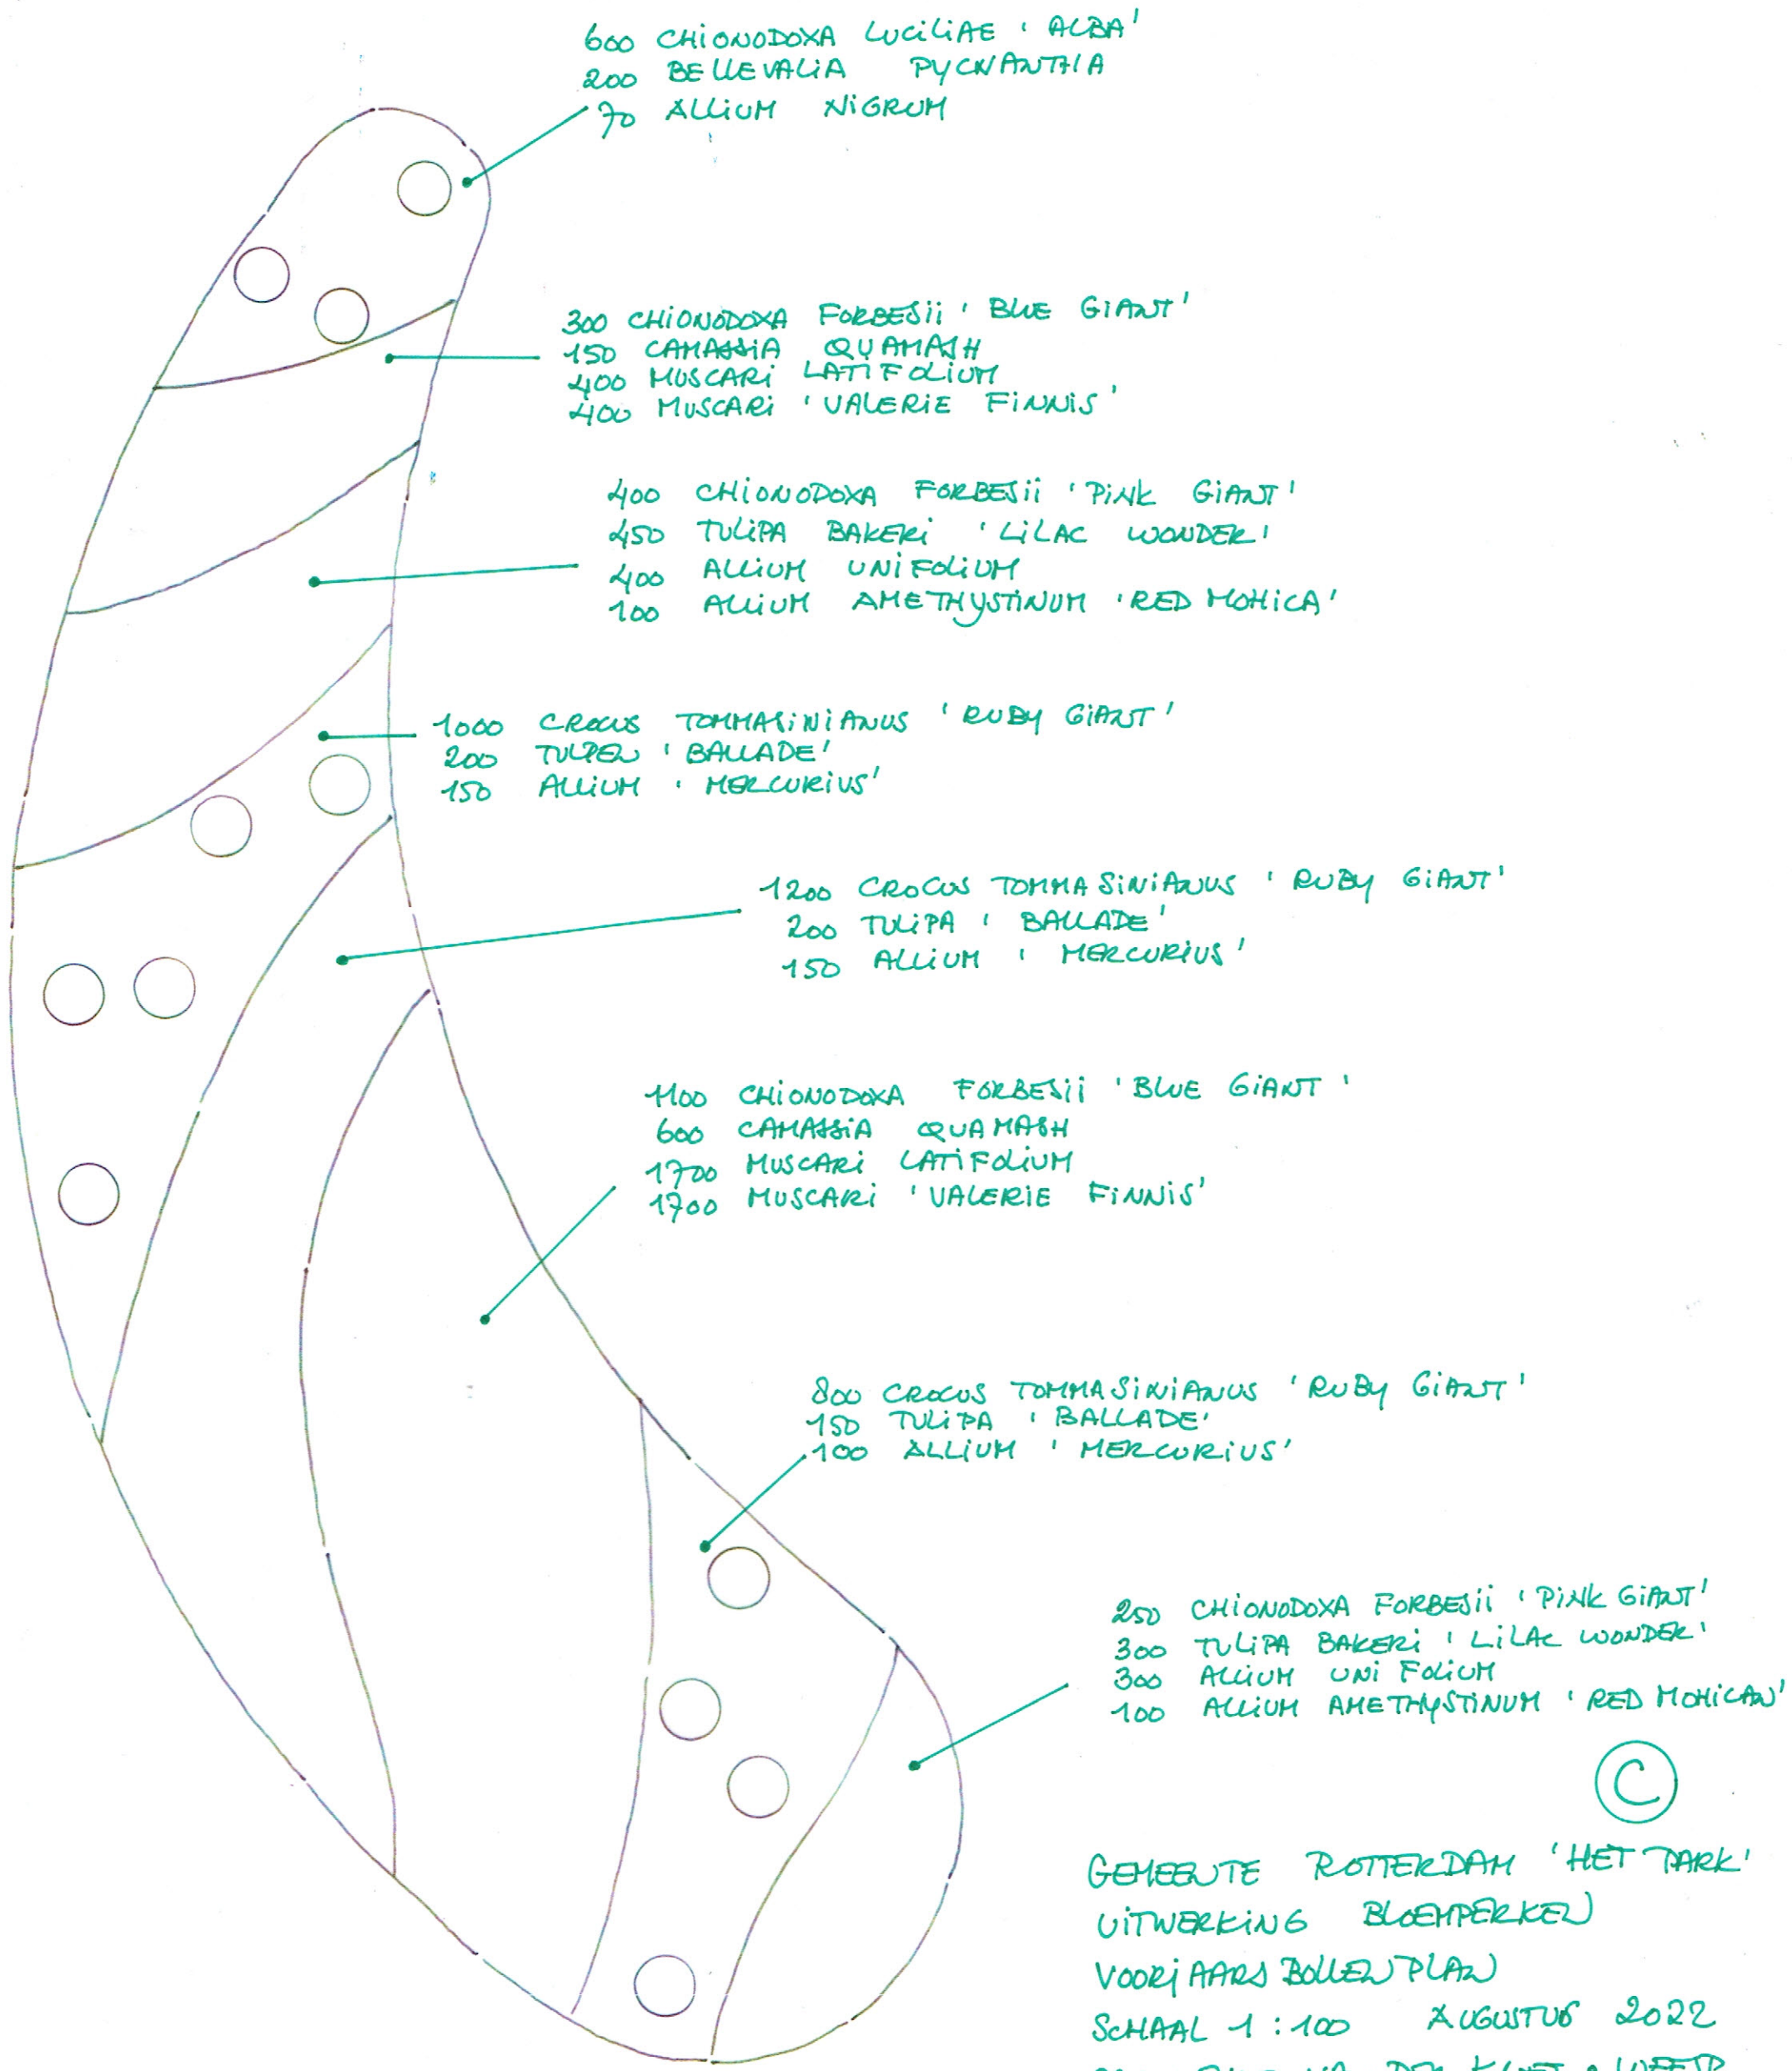 600 CHIONODOXA LUCILIAE 'ALBA'
200 BELLEVALIA PYCNANTHA
70 ALLIUM NIGRUM
300 CHIONODOXA FORBESII 'BLUE GIANT'
150 CAMASSIA QUAMASH
400 MUSCARI LATIFOLIUM
400 MUSCARI 'VALERIE FINNIS'
400 CHIONODOXA FORBESII 'PINK GIANT'
450 TULIPA BAKERI 'LILAC WONDER'
400 ALLIUM UNIFOLIUM
100 ALLIUM AMETHYSTINUM 'RED MOHICA'
1000 CROCUS TOMMASINIANUS 'RUBY GIANT'
200 TULPEN 'BALLADE'
150 ALLIUM 'MERCURIUS'
1200 CROCUS TOMMASINIANUS 'RUBY GIANT'
200 TULIPA 'BALLADE'
150 ALLIUM 'MERCURIUS'
1100 CHIONODOXA FORBESII 'BLUE GIANT'
600 CAMASSIA QUAMASH
1700 MUSCARI LATIFOLIUM
1700 MUSCARI 'VALERIE FINNIS'
800 CROCUS TOMMASINIANUS 'RUBY GIANT'
150 TULIPA 'BALLADE'
100 ALLIUM 'MERCURIUS'
250 CHIONODOXA FORBESII 'PINK GIANT'
300 TULIPA BAKERI 'LILAC WONDER'
300 ALLIUM UNI FOLIUM
100 ALLIUM AMETHYSTINUM 'RED MOHICAN'
©
GEMEENTE ROTTERDAM 'HET PARK'
UITWERKING BLOEMPERKEN
VOORJAARSBOLLENPLAN
SCHAAL 1:100 AUGUSTUS 2022